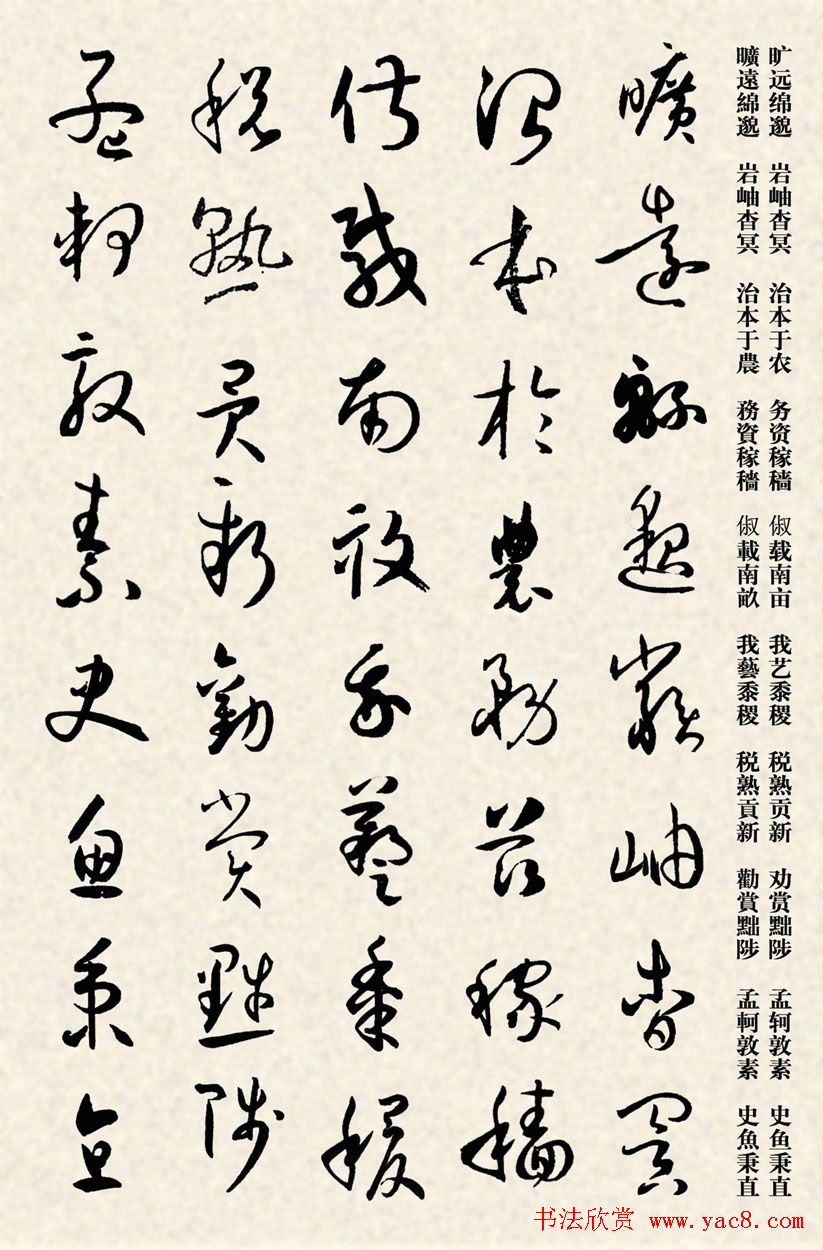 旷远绵邈 岩岫杳冥 治本于农 务资稼穑 俶载南亩 我艺黍稷 税熟贡新 劝赏黜陟 孟轲敦素 史鱼秉直
曠遠綿邈 岩岫杳冥 治本于農 務資稼穡 俶載南畝 我藝黍稷 税熟貢新 勸賞黜陟 孟軻敦素 史魚秉直
曠遠綿邈巖岫杳冥
治本於農務茲稼穡
俶載南畝我藝黍稷
稅熟貢新勸賞黜陟
孟軻敦素史魚秉直
书法欣赏 www.yac8.com